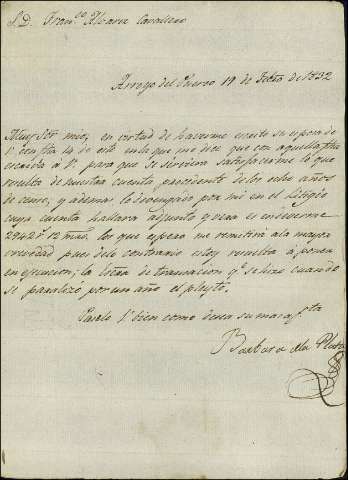 S.D. Fran.co Alvarez Cavallero
Arroyo del Puerco 19 de Febro de 1832
Muy Sor mio; en virtud de haverme escrito su esposa de
V. con fha 14 de este en la que me dice que con aquella fha
escrivia a V. para que se sirviera satisfacerme lo que
resulta de nuestra cuenta precidente de los ocho años
de censo, y ademas lo devengado por mi en el Litigio
cuya cuenta hallara adjunta y vera el endeverme
2942 r.s 12 mrs. los que espero me remitirá a la mayor
brevedad pues delo contrario estoy resuelta á poner
en ejecucion; la Escra de transacion q.e se hizo cuando
se paralizó por un año el pleyto.
Pasalo V. bien como desea su mas af.ta
Barbara dela Plata